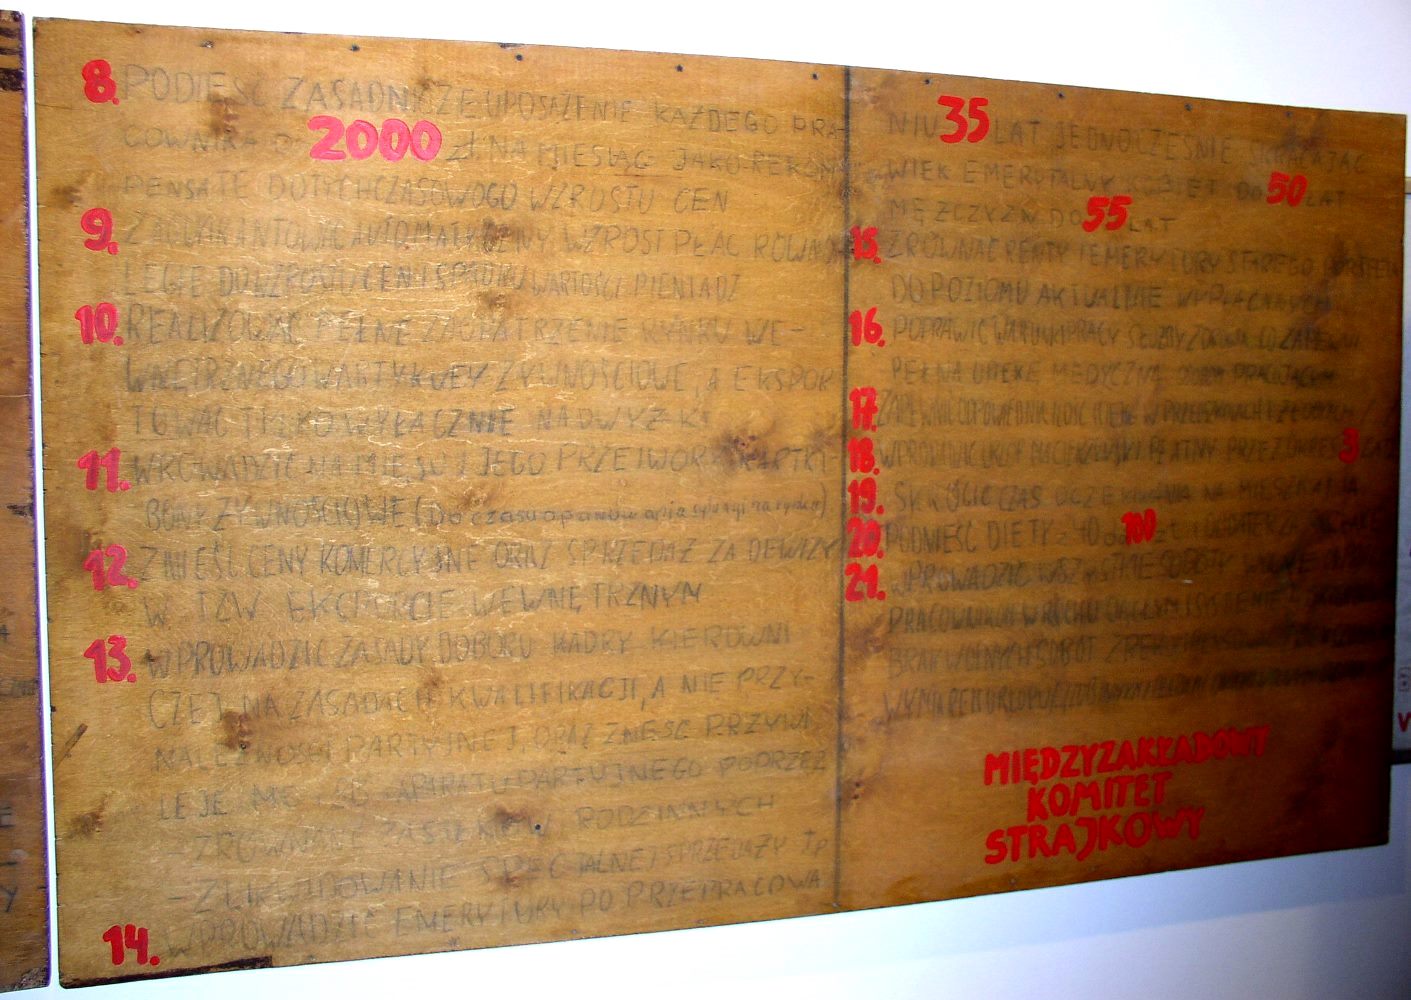 8. PODIEŚĆ ZASADNYZE UPOSAŻENIE KAŻDEGO PRA-
COWNIKA O 2000 zł. NA MIESIĄC JAKO REKOM
PENSATE DOTYCHCZASOWOGO WZROSTU CEN
9. ZAGWARANTOWAĆ AUTOMATYCZNY WZROST PŁAC RÓWNO
LEGLE DO WZROSTU CEN I SPADKU WARTOŚCI PIENIĄDZ
10. REALIZOWAĆ PEŁNE ZAOPATRZENIE RYNKU WE-
WNĘTRZNEGO W ARTYKUŁY ŻYWNOŚCIOWE, A EKSPOR
TOWAĆ TYLKO WYŁĄCZNIE NADWYŻKI
11. WROWADZIĆ NA MIĘSO I JEGO PRZETWORY KARTKI-
BONY ŻYWNOŚCIOWE (Do czasu opanowania sytuacji na rynku)
12. ZNIEŚĆ CENY KOMERCYJNE ORAZ SPRZEDAŻ ZA DEWIZY
W TZW. EKSPORCIE WEWNĘTRZNYM
13. WPROWADZIĆ ZASADY DOBORU KADRY KIEROWNI
CZEJ NA ZASADACH KWALIFIKACJI, A NIE PRZY-
NALEŻNOŚCI PARTYJNEJ, ORAZ ZNIEŚĆ PRZYWI
LEJE APARATU PARTYJNEGO POPRZEZ
-ZRÓWNANIE ZASIŁKÓW RODZINNYCH
-ZLIKWIDOWANIE SPECJALNEJ SPRZEDAŻY ITP
14. WPROWADZIĆ EMERYTURY PO PRZEPRACOWA
NIU 35 LAT JEDNOCZEŚNIE SKRACAJĄC
WIEK EMERYTALNY KOBIET DO 50 LAT
MĘZCZYZN DO 55 LAT
15. ZRÓWNAĆ RENTY I EMERYTURY STAREGO PORTFELA
DO POZIOMU AKTUALNIE WYPŁACANYCH
16. POPRAWIĆ WARUNKI PRACY SŁUŻBY ZDROWIA CO ZAPEWNI
PEŁNĄ OPIEKE MEDYCZNĄ OSOBOM PRACUJĄCYM
17. ZAPEWNIĆ ODPOWIEDNIĄ ILOŚĆ MIEJSC W PRZEDSZKOLACH I ŻŁOBKACH
18. WPROWADZIĆ URLOP MACIERZYŃSKI PŁATNY PRZEZ OKRES 3 LAT
19. SKRÓCIĆ CZAS OCZEKIWANIA NA MIESZKANIA
20. PODNIEŚĆ DIETY z 40 do 100 zł I DODATEK ZA ROZŁĄKE
21. WPROWADZIĆ WSZYSTKIE SOBOTY WOLNE
PRACOWNIKOM W RUCHU CIĄGŁYM I SYSTEMIE
BRAK WOLNYCH SOBÓT ZREKOMPENSOWAĆ
MIĘDZYZAKŁADOWY
KOMITET
STRAJKOWY